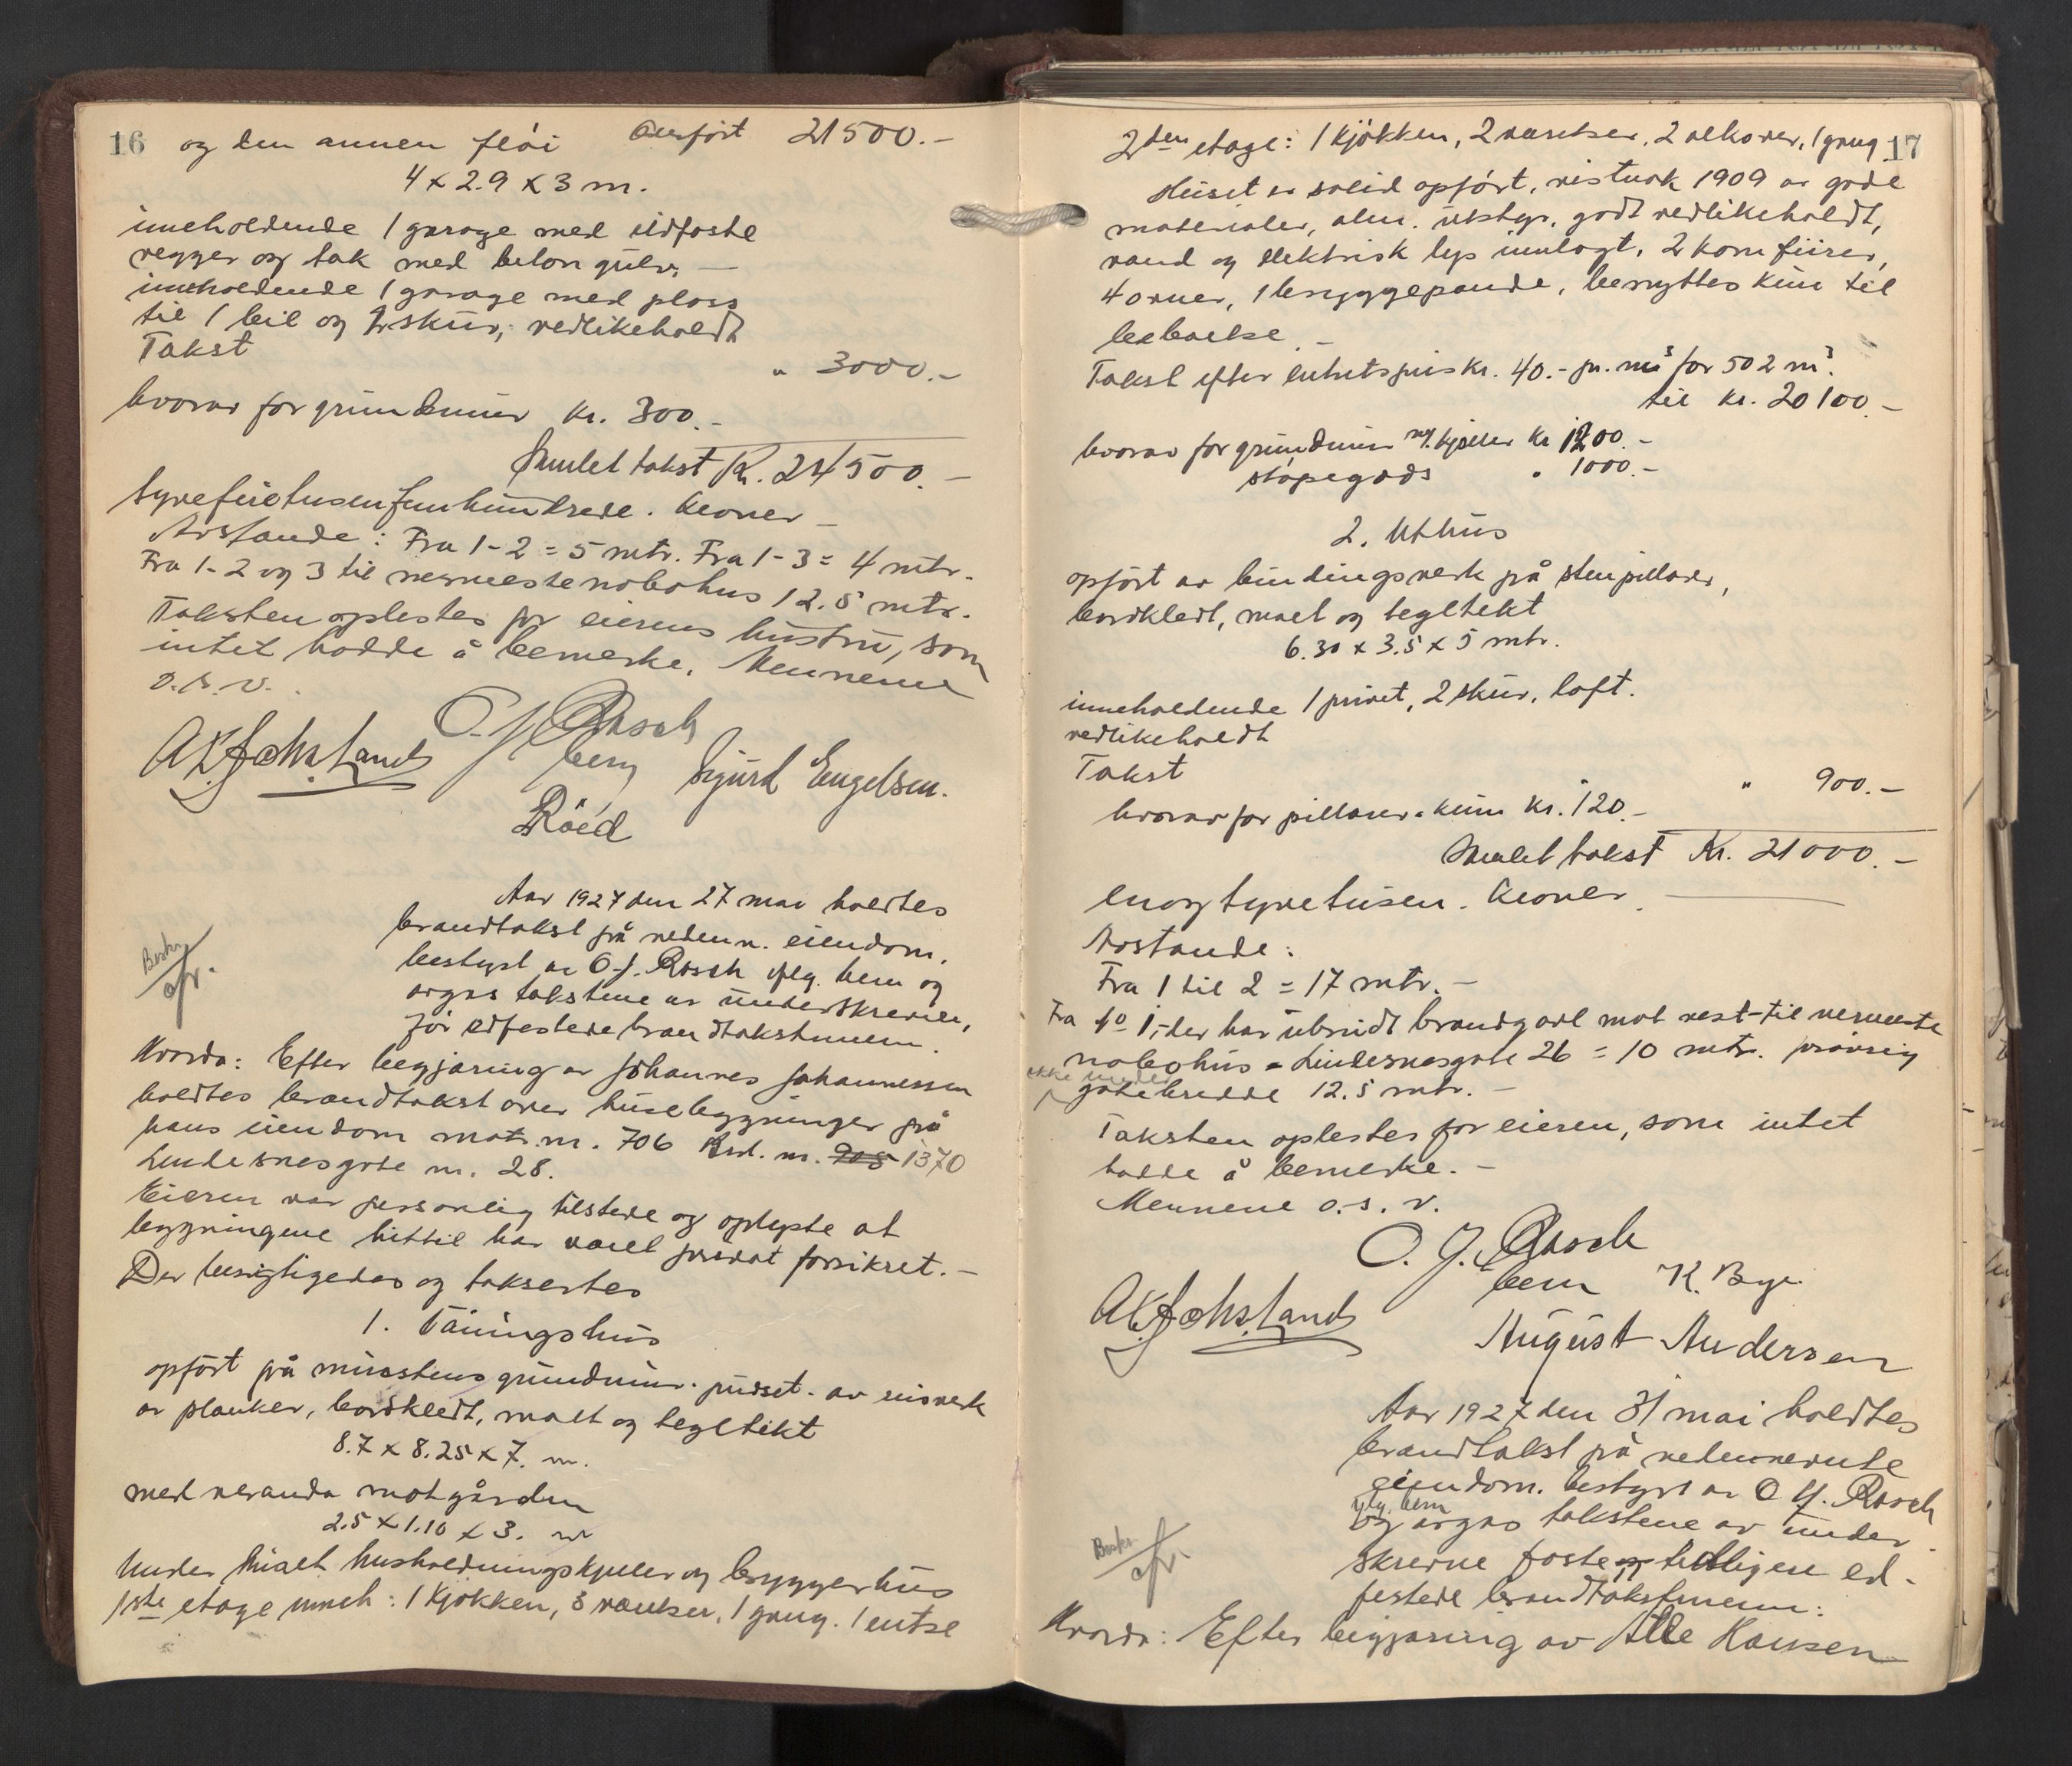 16 og den annen fløi Overført 21500.-
4 x 2.9 x 3 m.
inneholdende 1 garage med ildfaste
vegger og tak med betongulv. —
inneholdende 1 garage med plass
til 1 bil og 1 skur, vedlikeholdt
Takst " 3000.-
hvorav for grundmur kr. 300.-
Samlet takst Kr. 24500.-
tyvefiretusenfemhundrede. Kroner —
Avstande: Fra 1-2 = 5 mtr. Fra 1-3 = 4 mtr.
Fra 1-2 og 3 til nermeste nabohus 12.5 mtr.
Taksten oplestes for eierens hustru, som
intet hadde å bemerke. Mennene
o.s.v.
O. J. Rasch
A K Johs. Land berg Sigurd Engelsen.
Röed
Aar 1927 den 27 mai holdtes
brandtakst på nedenn. eiendom.
bestyrt av O. J. Rasch eflg. bem og
avgas takstene av underskrevne,
før edfestede brandtakstmenn.
Beskr.
afr.
Hvorda: Efter begjæring av Johannes Johannessen
holdtes brandtakst over husebygninger på
hans eiendom matr. nr. 706 Brd. nr. 905 1370
Lindesnesgate nr. 28.
Eieren var personlig tilstede og oplyste at
bygningene hittil har været privat forsikret. —
Der besigtigedes og taksertes
1. Våningshus
opført på murstens grundmur. pusset. av reisverk
av planker, bordkledt, malt og tegltekt
8.7 x 8.25 x 7. m.
med veranda mot gården
2.5 x 1.10 x 3. m
Under huset husholdningskjeller og bryggerhus
1ste etage inneh: 1 kjøkken, 3 værelser, 1 gang. 1 entre
2den etage: 1 kjøkken, 2 værelser, 2 alkover, 1 gang 17
Huset er solid opført, vistnok 1909 av gode
materialer, alm. utstyr. godt vedlikeholdt,
vand og elektrisk lys innlagt. 2 komfurer,
4 ovner, 1 bryggepande, benyttes kun til
beboelse. —
Takst efter enhetspris kr. 40.- pr. m3 for 502 m3.
til kr. 20100.-
hvorav for grundmur m/kjeller kr 1200.-
støpegods " 1000.-
2. Uthus
opført av bindingsverk på stenpillarer,
bordkledt, malt og tegltekt
6.30 x 3.5 x 5 mtr.
inneholdende 1 privet, 2 skur, loft.
vedlikeholdt
Takst " 900.-
hvorav for pillarer kun kr. 120.-
Samlet takst Kr. 21000.-
enogtyvetusen. Kroner.
Avstande:
Fra 1 til 2 = 17 mtr. —
Fra No 1, der har ubrudt brandgavl mot vest - til nermeste
nabohus - Lindesnesgate 26 = 10 mtr. forøvrig
ikke under
gatebredde 12.5 mtr. —
Taksten oplestes for eieren, som intet
hadde å bemerke. —
Mennene o. s. v.
O. J. Rasch
bem K. Bye.
A K Johs. Land
August Andersen
Aar 1927 den 31 mai holdtes
brandtakst på nedennevnte
eiendom. bestyrt av O. J. Rasch
eflg. bem
og avgas takstene av under
skrevne faste og tidligere ed-
festede brandtakstmenn:
Beskr.
afr.
Hvorda: Efter begjæring av Atle Hansen